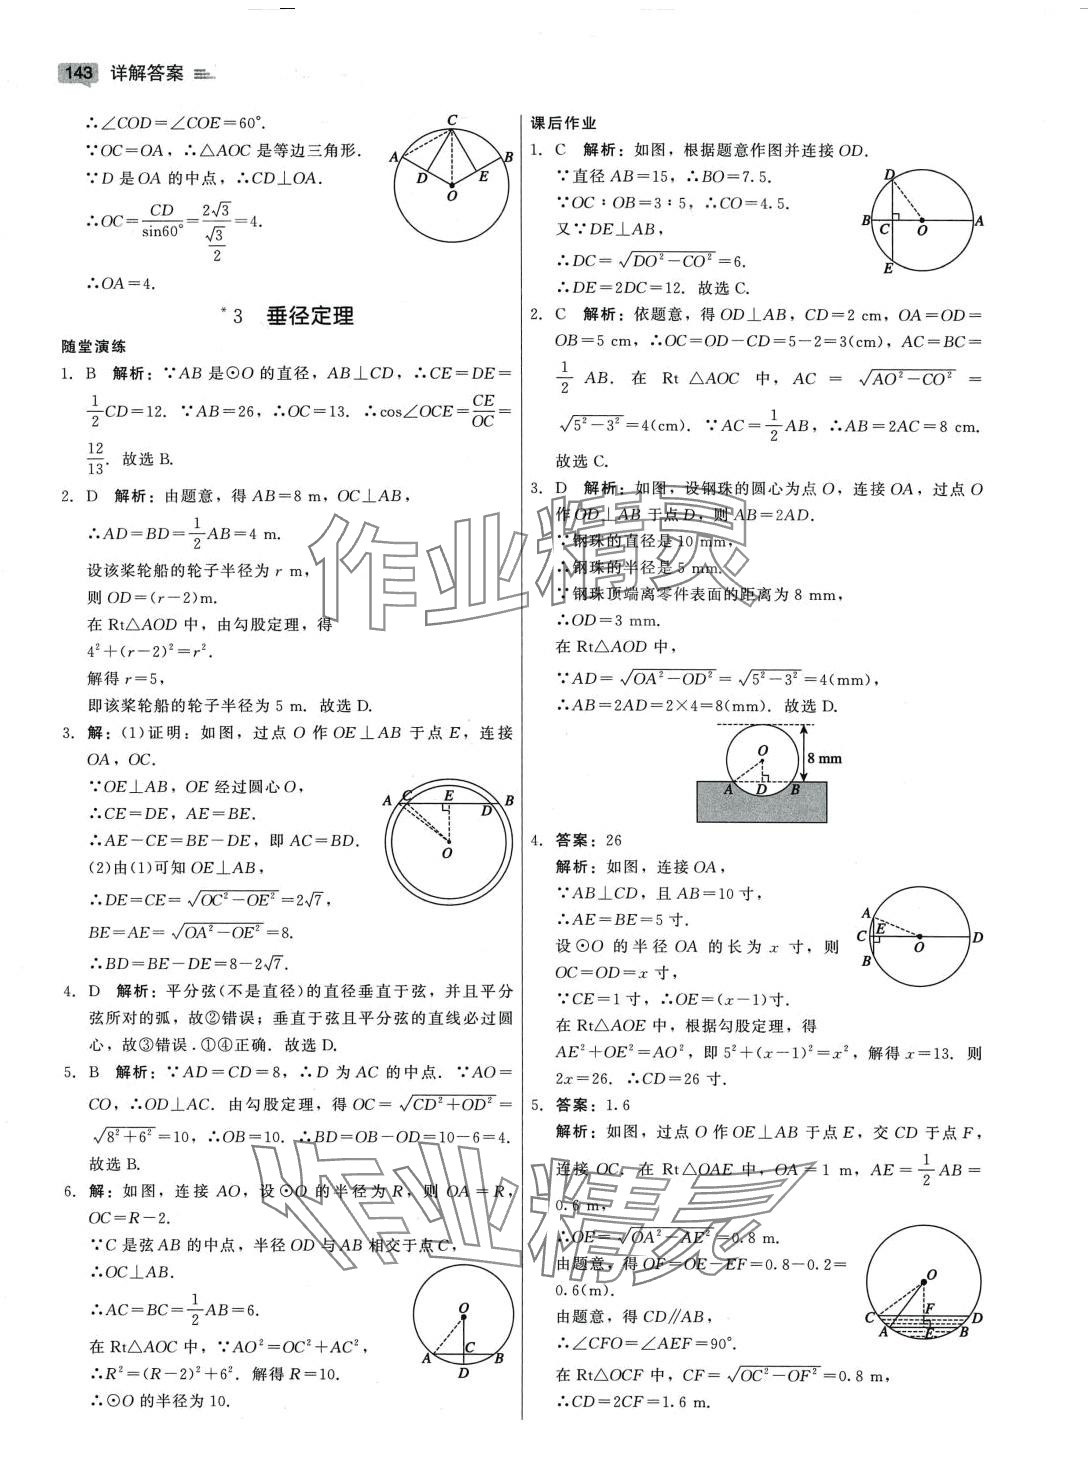 143 详解答案
∴∠COD=∠COE=60°.
∵OC=OA，∴△AOC 是等边三角形.
∵D 是 OA 的中点，∴CD⊥OA.
∴OC=CD/sin60°=2√3/(√3/2)=4.
∴OA=4.
A
B
C
D
E
O
*3 垂径定理
随堂演练
1. B 解析：∵AB 是⊙O 的直径，AB⊥CD，∴CE=DE=
1/2CD=12. ∵AB=26，∴OC=13. ∴cos∠OCE=CE/OC=
12/13. 故选 B.
2. D 解析：由题意，得 AB=8 m，OC⊥AB，
∴AD=BD=1/2AB=4 m.
设该桨轮船的轮子半径为 r m，
则 OD=(r-2)m.
在 Rt△AOD 中，由勾股定理，得
4²+(r-2)²=r².
解得 r=5，
即该桨轮船的轮子半径为 5 m. 故选 D.
3. 解：(1)证明：如图，过点 O 作 OE⊥AB 于点 E，连接
OA，OC.
∵OE⊥AB，OE 经过圆心 O，
∴CE=DE，AE=BE.
∴AE-CE=BE-DE，即 AC=BD.
(2)由(1)可知 OE⊥AB，
∴DE=CE=√(OC²-OE²)=2√7，
BE=AE=√(OA²-OE²)=8.
∴BD=BE-DE=8-2√7.
A
C
E
D
B
O
4. D 解析：平分弦(不是直径)的直径垂直于弦，并且平分
弦所对的弧，故②错误；垂直于弦且平分弦的直线必过圆
心，故③错误.①④正确. 故选 D.
5. B 解析：∵AD=CD=8，∴D 为 AC 的中点. ∵AO=
CO，∴OD⊥AC. 由勾股定理，得 OC=√(CD²+OD²)=
√(8²+6²)=10，∴OB=10. ∴BD=OB-OD=10-6=4.
故选 B.
6. 解：如图，连接 AO，设⊙O 的半径为 R，则 OA=R，
OC=R-2.
∵C 是弦 AB 的中点，半径 OD 与 AB 相交于点 C，
∴OC⊥AB.
∴AC=BC=1/2AB=6.
在 Rt△AOC 中，∵AO²=OC²+AC²，
∴R²=(R-2)²+6². 解得 R=10.
∴⊙O 的半径为 10.
O
A
C
B
D
课后作业
1. C 解析：如图，根据题意作图并连接 OD.
∵直径 AB=15，∴BO=7.5.
∵OC∶OB=3∶5，∴CO=4.5.
又∵DE⊥AB，
∴DC=√(DO²-CO²)=6.
∴DE=2DC=12. 故选 C.
D
B
C
O
A
E
2. C 解析：依题意，得 OD⊥AB，CD=2 cm，OA=OD=
OB=5 cm，∴OC=OD-CD=5-2=3(cm)，AC=BC=
1/2 AB. 在 Rt △AOC 中，AC = √(AO²-CO²) =
√(5²-3²)=4(cm). ∵AC=1/2AB，∴AB=2AC=8 cm.
故选 C.
3. D 解析：如图，设钢珠的圆心为点 O，连接 OA，过点 O
作 OD⊥AB 于点 D，则 AB=2AD.
∵钢珠的直径是 10 mm，
∴钢珠的半径是 5 mm.
∵钢珠顶端离零件表面的距离为 8 mm，
∴OD=3 mm.
在 Rt△AOD 中，
∵AD=√(OA²-OD²)=√(5²-3²)=4(mm)，
∴AB=2AD=2×4=8(mm). 故选 D.
O
8 mm
A
D
B
4. 答案：26
解析：如图，连接 OA，
∵AB⊥CD，且 AB=10 寸，
∴AE=BE=5 寸.
设⊙O 的半径 OA 的长为 x 寸，则
OC=OD=x 寸，
∵CE=1 寸，∴OE=(x-1)寸.
在 Rt△AOE 中，根据勾股定理，得
AE²+OE²=AO²，即 5²+(x-1)²=x²，解得 x=13. 则
2x=26. ∴CD=26 寸.
A
C
E
O
D
B
5. 答案：1.6
解析：如图，过点 O 作 OE⊥AB 于点 E，交 CD 于点 F，
连接 OC. 在 Rt△OAE 中，OA=1 m，AE=1/2AB=
0.6 m，
∴OE=√(OA²-AE²)=0.8 m.
由题意，得 OF=OE-EF=0.8-0.2=
0.6(m).
由题意，得 CD∥AB，
∴∠CFO=∠AEF=90°.
在 Rt△OCF 中，CF=√(OC²-OF²)=0.8 m，
∴CD=2CF=1.6 m.
O
C
F
D
A
E
B
作业精灵
作业精灵